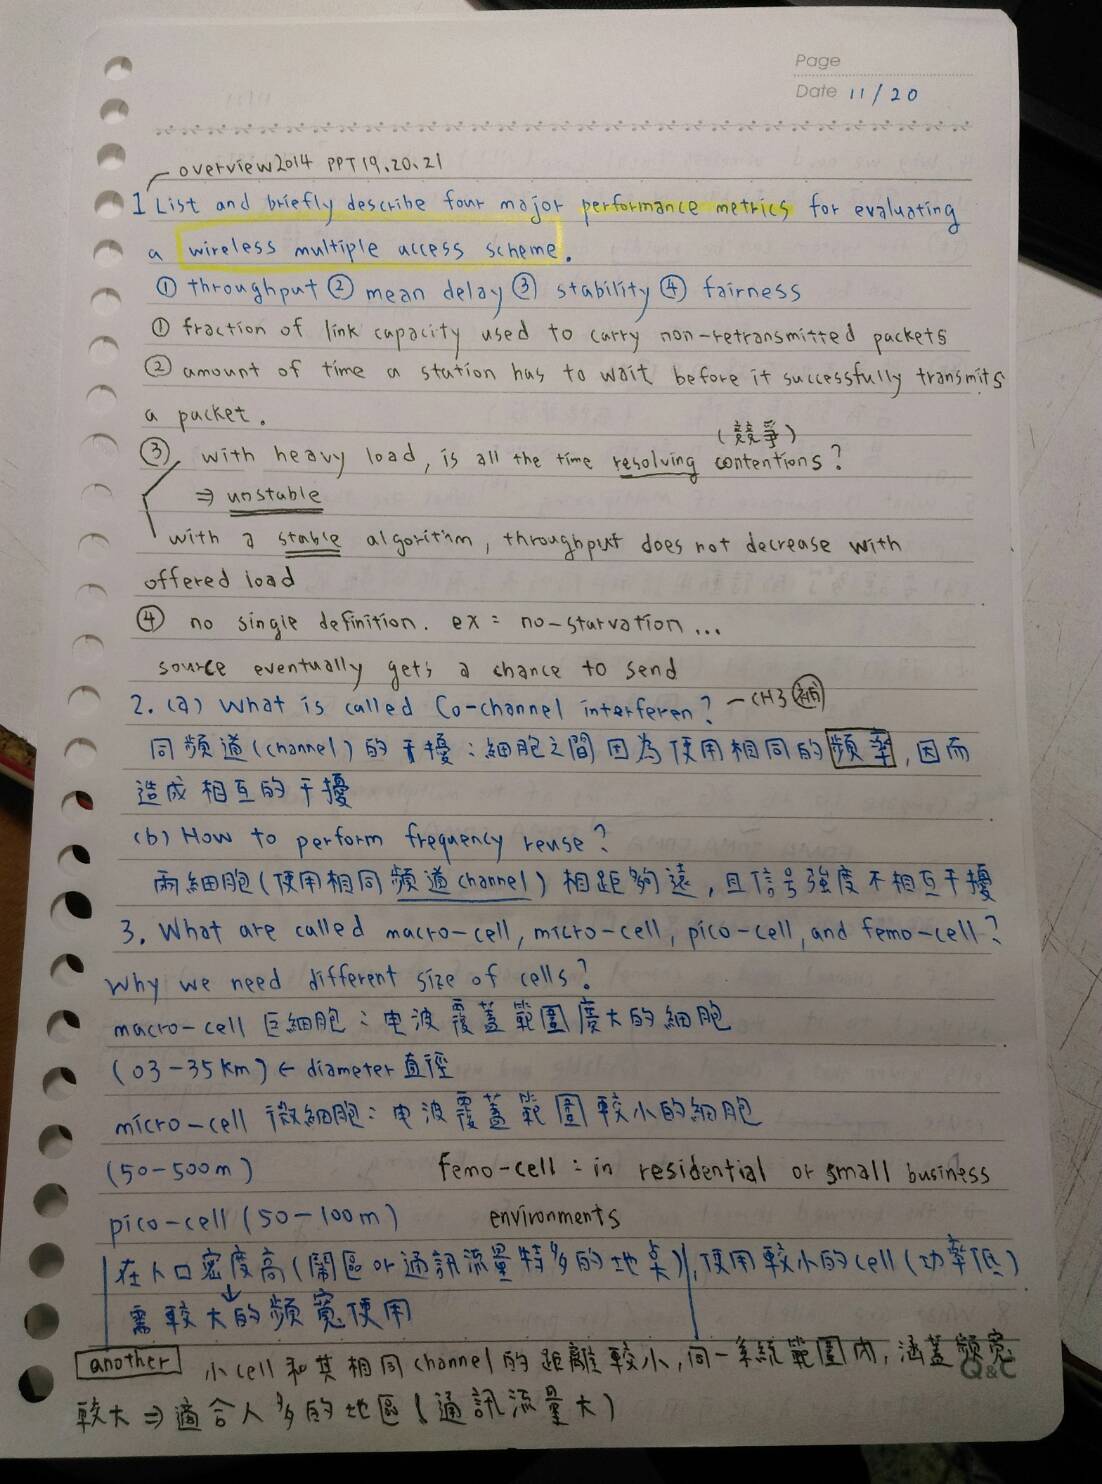 Page
Date 11/20
overview2014 PPT19.20.21
1 List and briefly describe four major performance metrics for evaluating
a wireless multiple access scheme.
① throughput ② mean delay ③ stability ④ fairness
① fraction of link capacity used to carry non-retransmitted packets
② amount of time a station has to wait before it successfully transmits
a packet.
(競爭)
③ with heavy load, is all the time resolving contentions?
⇒ unstable
with a stable algorithm, throughput does not decrease with
offered load
④ no single definition. ex: no-starvation...
source eventually gets a chance to send
2. (a) What is called Co-channel interferen? — CH3 補
同頻道(channel)的干擾:細胞之間因為使用相同的頻率,因而
造成相互的干擾
(b) How to perform frequency reuse?
兩細胞(使用相同頻道channel)相距夠遠,且信号強度不相互干擾
3. What are called macro-cell, micro-cell, pico-cell, and femo-cell?
Why we need different size of cells?
macro-cell 巨細胞:电波覆蓋範圍廣大的細胞
(03-35km) ← diameter 直徑
micro-cell 微細胞:电波覆蓋範圍較小的細胞
(50-500m) femo-cell: in residential or small business
pico-cell (50-100m) environments
在人口密度高(鬧區or通訊流量特多的地),使用較小的cell(功率低)
需較大的頻寬使用
another 小cell和其相同channel的距離較小,同一系統範圍內,涵蓋頻寬
較大⇒適合人多的地區(通訊流量大)
Q&C